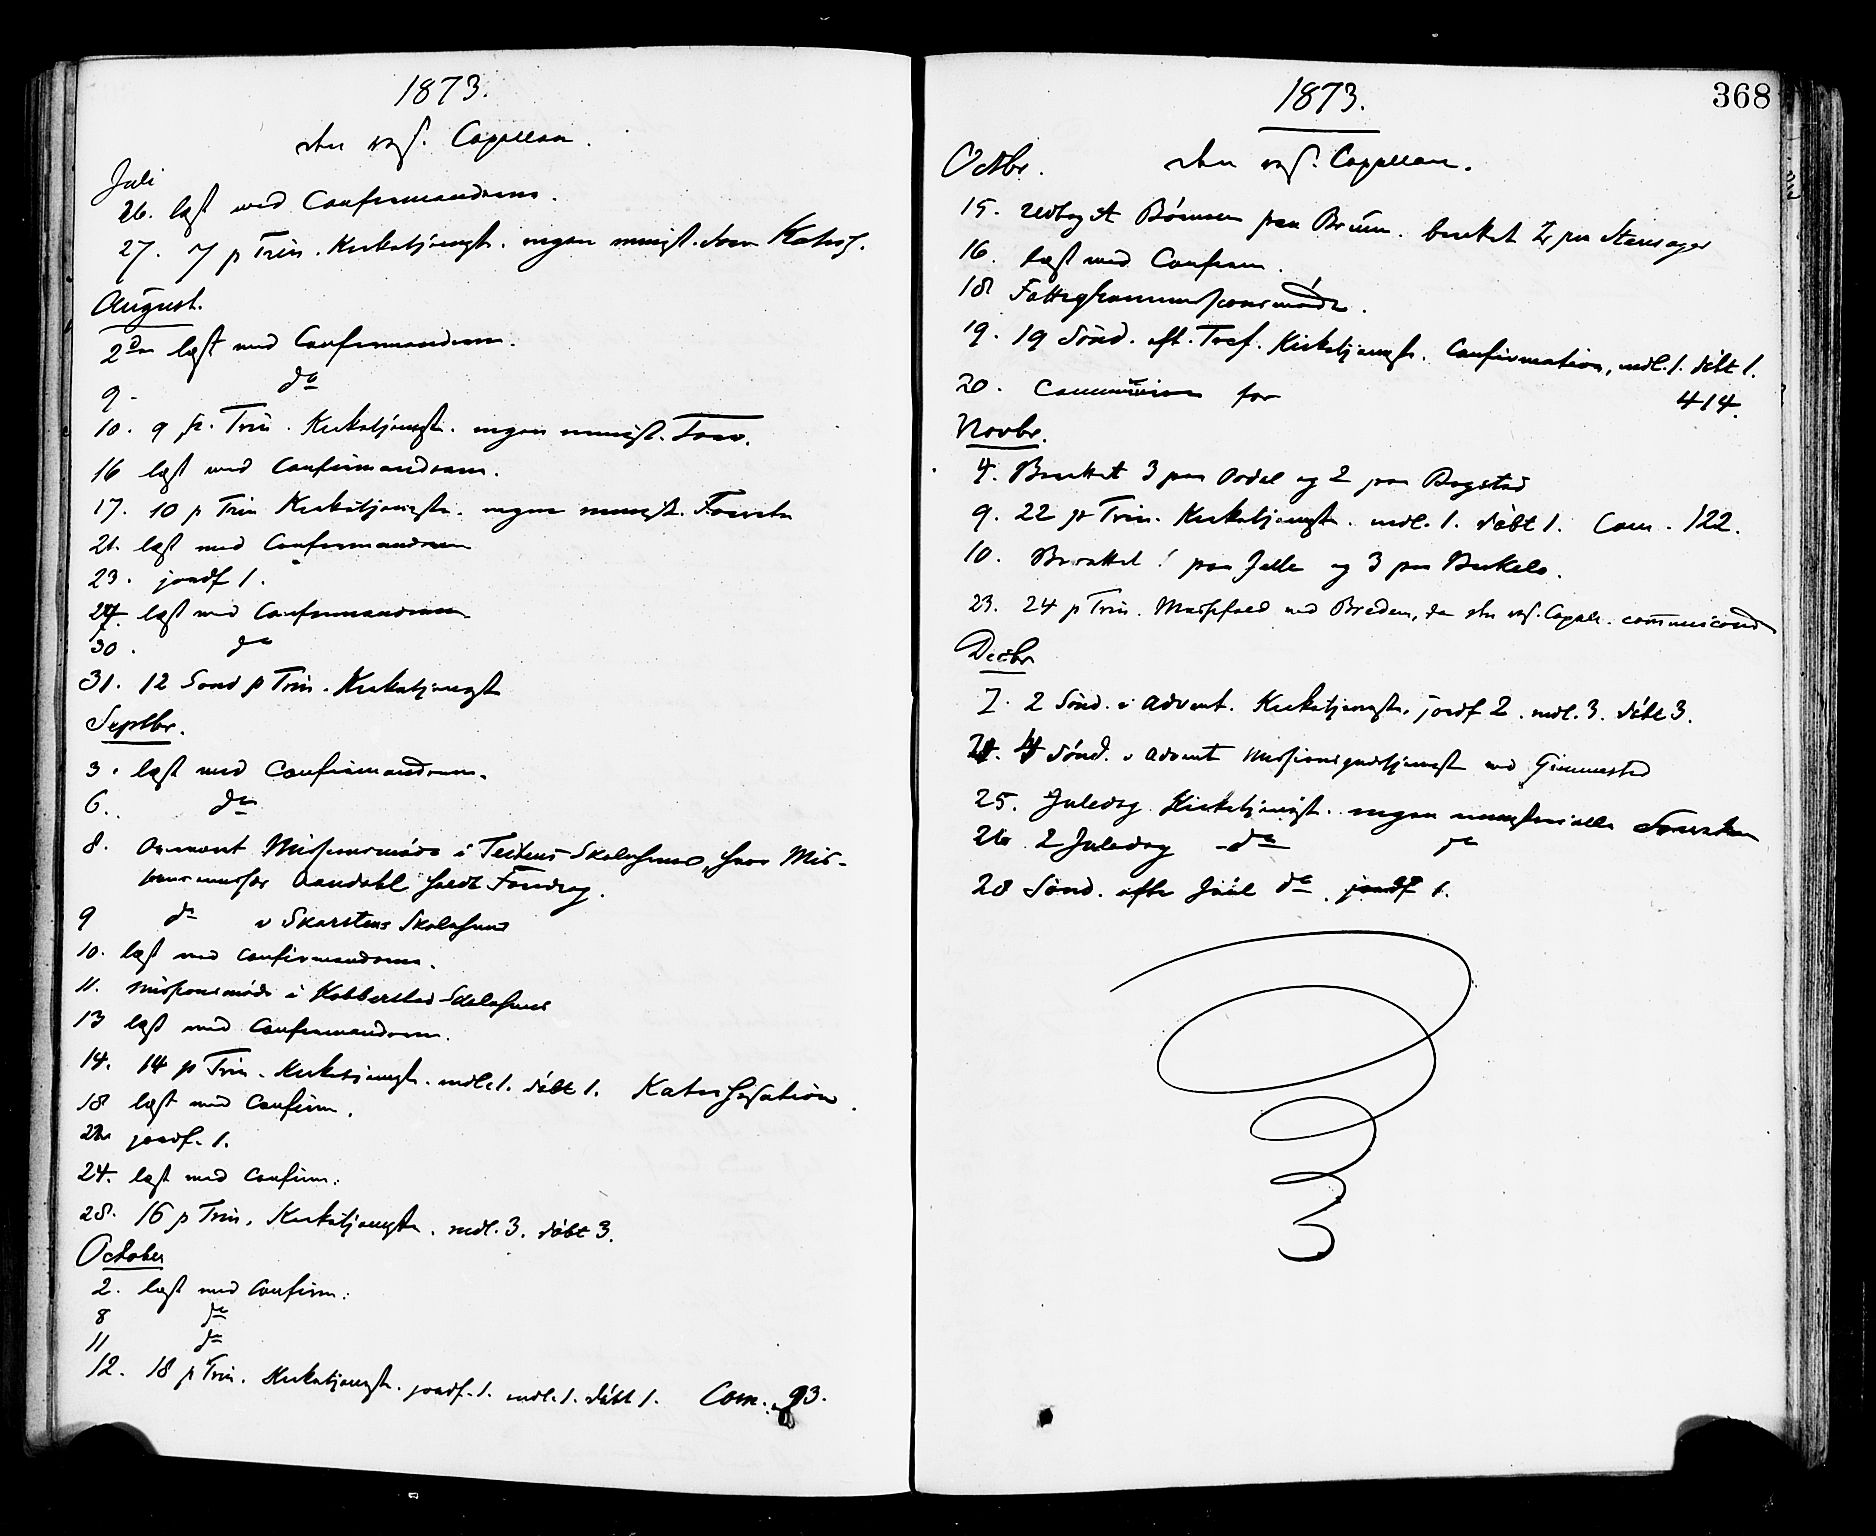 1873.
den resf. Capellan.
Juli
26. læst med Confirmanderne.
27. 7 p Trin. Kirketjeneste. ingen minist. Forr. Katech.
August.
2den læst med Confirmanderne.
9. do
10. 9 p. Trin. Kirketjeneste. ingen minist. Forr.
16 læst med Confirmanderne.
17. 10 p Trin Kirketjeneste. ingen minist. Forretn
21. læst med Confirmanderne
23. jordf 1.
27. læst med Confirmanderne
30. do
31. 12 Sønd p Trin. Kirketjeneste
Septbr.
3. læst med Confirmanderne.
6. do
8. Missionsmøde i Teitens Skolehuus, hvor Mis-
Aandahl holdt Foredrag.
9 do i Skarstens Skolehuus
10. læst med Confirmanderne.
11. Missionsmøde i Kobberstad Skolehuus
13 læst med Confirmanderne.
14. 14 p Trin. Kirketjeneste. indl. 1. døbt 1. Katechisation.
18 læst med Confirm.
jordf. 1.
24. læst med Confirm:
28. 16 p Trin. Kirketjeneste. indl. 3. døbt 3.
October
2. læst med Confirm:
8 do
11 do
12. 18 p Trin. Kirketjeneste. jordf. 1. indl. 1. døbt 1. Com. 93.
368
1873.
Octbr. den resf. Capellan.
15. Børnen paa Bruun. 2 paa
16. læst med Confirm.
18 Fattigkommissionsmøde.
19. 19 Sønd. eft. Tref. Kirketjeneste. Confirmation, indl. 1. døbt 1.
20. Communion for 414.
Novbr.
4. 3 paa og 2 paa Rygstad
9. 22 p Trin. Kirketjeneste. indl. 1. døbt 1. Com. 122.
10. 1 paa og 3 paa
23. 24 p Trin. Messefald ved Bredem, da den resf. Capell. communicerede
Decbr
7. 2 Sønd. i Advent. Kirketjeneste, jordf 2. indl. 3. døbt 3.
21. 4 Sønd. i Advent Missionsgudstjeneste ved Gimmestad
25. Juledag Kirketjeneste. ingen ministerielle Forretn
26 2 Juledag do do
28 Sønd. efter Juul do. jordf 1.